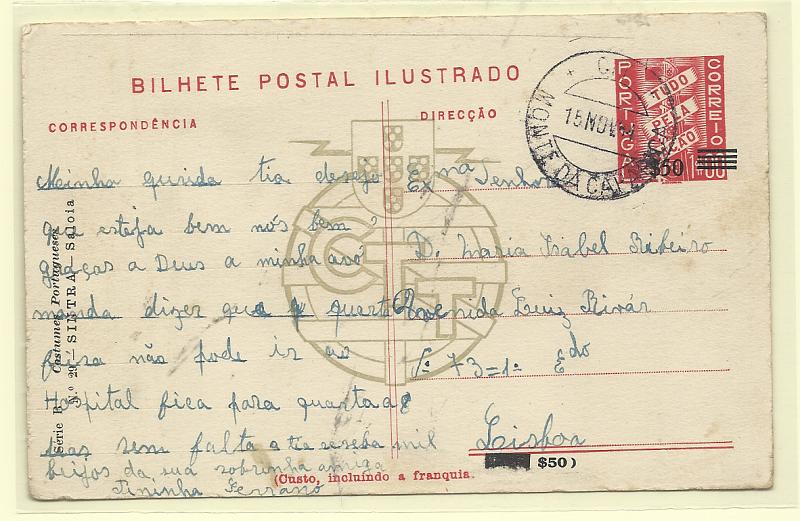 BILHETE POSTAL ILUSTRADO
CORRESPONDÊNCIA
DIRECÇÃO
PORTUGAL
CORREIO
TUDO
PELA
NAÇÃO
$50
MONTE DA CAPARICA
15 NOV
Minha querida tia desejo
que esteja bem nós bem
graças a Deus a minha avó
manda dizer que a quarta
feira não pode ir ao
Hospital fica para quarta a 8
dias sem falta a tia receba mil
beijos da sua sobrinha amiga
Tininha Serrano
Exma Senhora
D. Maria Isabel Ribeiro
Avenida Luiz Bivár
Nº 73=1º Edo
Lisboa
$50)
(Custo, incluíndo a franquia.
Série B Costumes Portugueses
N.º 29—SINTRA—Saloia
CTT